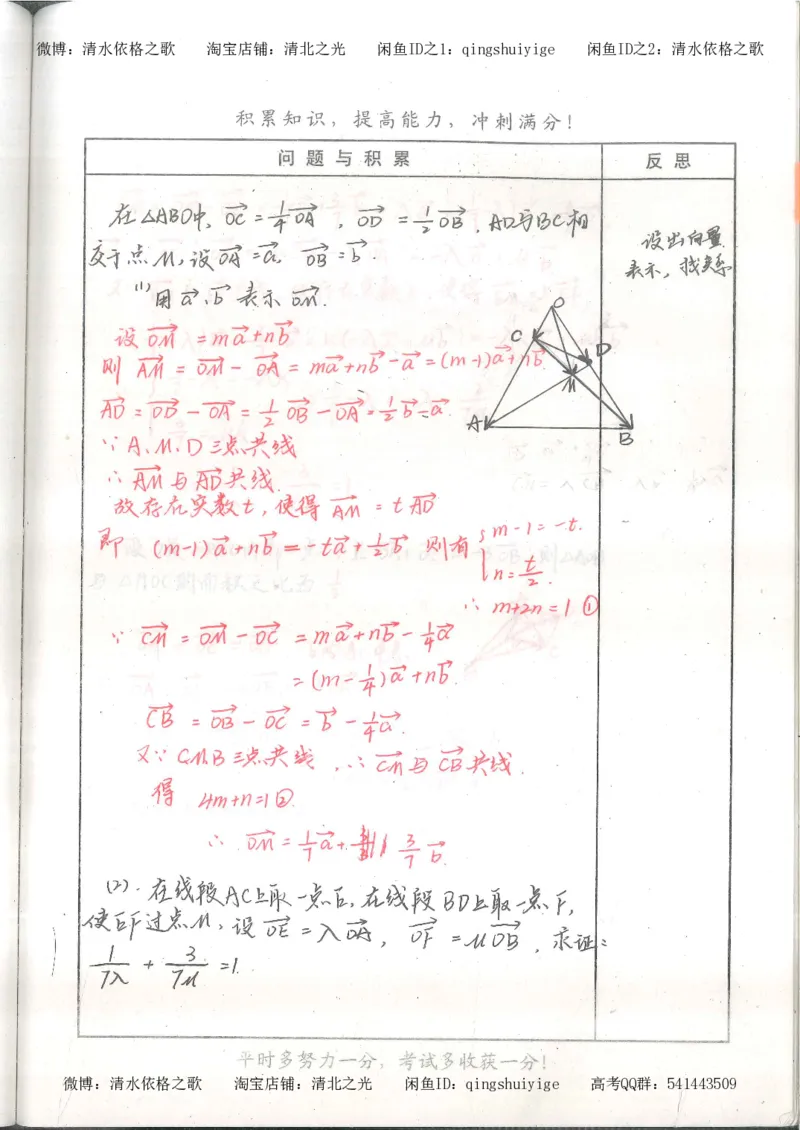 微博：清水依格之歌 淘宝店铺：清北之光 闲鱼ID之1：qingshuiyige 闲鱼ID之2：清水依格之歌
积累知识，提高能力，冲刺满分！
问题与积累 反思
在△ABO中，OC→=1/4OA→，OD→=1/2OB→，AD与BC相
交于点M，设OA→=a→，OB→=b→.
设出向量
表示，找关系
(1)用a→、b→表示OM→.
设OM→=ma→+nb→
则AM→=OM→-OA→=ma→+nb→-a→=(m-1)a→+nb→.
AD→=OD→-OA→=1/2OB→-OA→=1/2b→-a→.
∵A、M、D三点共线
∴AM→与AD→共线.
故存在实数t，使得AM→=tAD→
即(m-1)a→+nb→=-ta→+t/2b→ 则有{m-1=-t.
n=t/2.
∴m+2n=1①
∵CM→=OM→-OC→=ma→+nb→-1/4a→
=(m-1/4)a→+nb→.
CB→=OB→-OC→=b→-1/4a→.
又∵CMB三点共线，∴CM→与CB→共线.
得 4m+n=1②
∴OM→=1/7a→+3/7b→.
(2).在线段AC上取一点E，在线段BD上取一点F，
使EF过点M，设OE→=λOA→，OF→=μOB→，求证：
1/7λ+3/7μ=1.
O
C
D
M
A
B
平时多努力一分，考试多收获一分！
微博：清水依格之歌 淘宝店铺：清北之光 闲鱼ID：qingshuiyige 高考QQ群：541443509